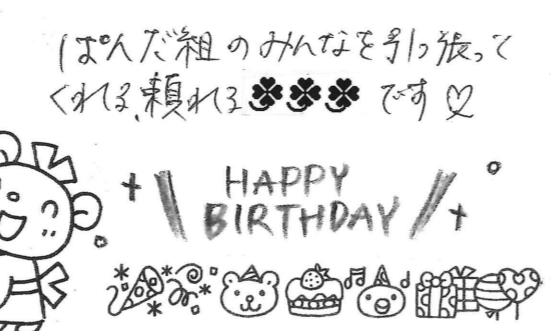 ぱんだ組のみんなを引っ張って
くれる、頼れる🍀🍀🍀です♡
HAPPY
BIRTHDAY